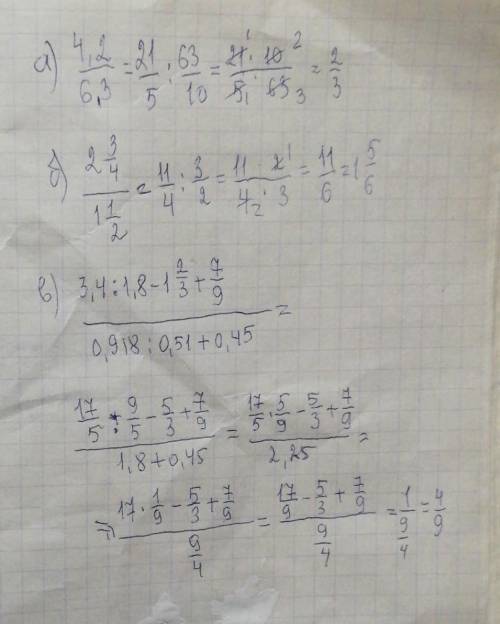 а) 4,2/6,3 = 21/5 : 63/10 = 21 · 10/5 · 63 = 2/3
б) 2 3/4 / 1 1/2 = 11/4 : 3/2 = 11 · 2/4 · 3 = 11/6 = 1 5/6
в) 3,4 : 1,8 - 1 2/3 + 7/9
0,918 : 0,51 + 0,45 =
17/5 : 9/5 - 5/3 + 7/9 / 1,8 + 0,45 = 17/5 · 5/9 - 5/3 + 7/9 / 2,25 =
= 17 · 1/9 - 5/3 + 7/9 / 9/4 = 17/9 - 5/3 + 7/9 / 9/4 = 1 / 9/4 = 4/9